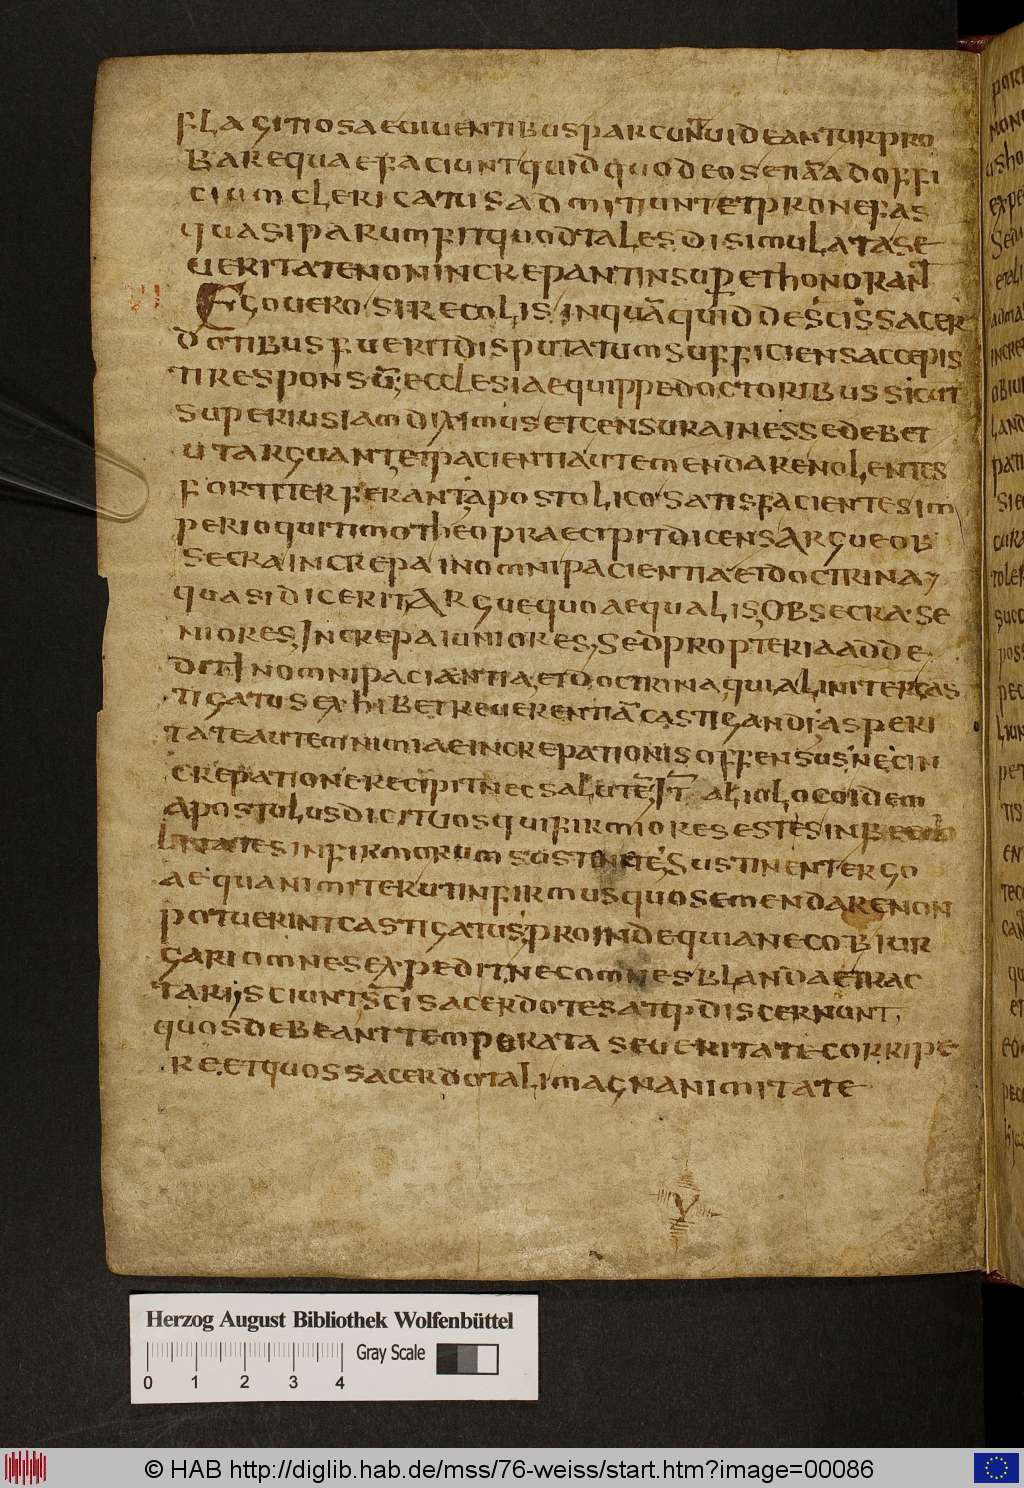 flagitiosaeuiuentibusparcunt uideanturpro
barequaefaciuntquid quoddeosenã adoffi
ciumclericatusadmittuntetpronefas
quasiparumfitquodtalesdisimulatase
ueritatenonincrepantinsup ethonorant
VI Egouero.sirecolis.inquã quiddescissacer
dotibusfueritdisputatumsufficiensaccepis
tiresponsũ;ecclesiaequippedoctoribussicut
superiusiamdiximusetcensurainessedebet
utarguantetpacientiautemendarenolentes
fortiterferantapostolicosatisfacientesim
perioquitimotheopraecipitdicensArgueob
secraincrepainomnipacientiaetdoctrina,
quasidiceritArguequoaequalis,Obsecra.se
niores,Increpaiuniores,Sedpropteriaadde
ditInomnipacientia,etdoctrina,quialinitercas
tigatusexhibetreuerentiã castigandi,asperi
tateautemnimiaeincrepationisoffensus,necin
crepationerecipitnecsalutẽ,It aliolocoidem
apostolusdicituosquifirmioresestesinbecil
litatesinfirmorumsustinete,Sustinentergo
aequanimiterutinfirmusquosemendarenon
potuerintcastigatus;proindequianecobiur
gariomnesexpeditnecomnesblandaetrac
tari,sciuntscisacerdotesatqdiscernunt,
quosdebeanttemperataseueritatecorripe
re.etquossacerdotalimagnanimitate
V
Herzog August Bibliothek Wolfenbüttel
Gray Scale
0 1 2 3 4
© HAB http://diglib.hab.de/mss/76-weiss/start.htm?image=00086